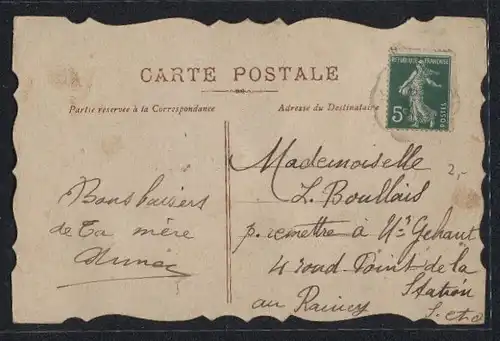 CARTE POSTALE
Partie réservée à la Correspondance
Adresse du Destinataire
REPUBLIQUE FRANÇAISE
5c
POSTES
Bons baisers
de ta mère
Mademoiselle
L. Boullais
p. remettre à Mr Gehant
4 rond-Point de la
Station
au Raincy
S. et O
2,-